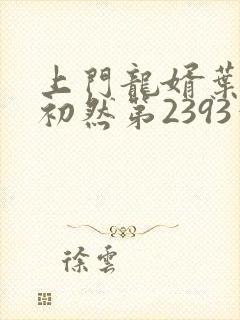 上門龍婿葉
初然第2393
徐雲